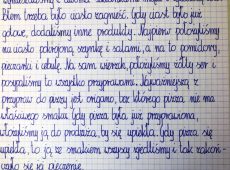 Potem trzeba było ciasto zagnieść. Gdy ciast było już
gotowe, dodaliśmy inne produkty. Najpierw położyliśmy
na ciasto pokrojoną szynkę i salami, a na to pomidory,
pieczarki i cebulę. Na sam wierzch, położyliśmy żółty ser i
posypaliśmy to wszystko przyprawami. Najważniejszą z
przypraw do pizzy jest origano, bez którego pizza, nie ma
właściwego smaku. Gdy pizza była już przyprawiona,
włożyliśmy ją do prodiża, by się upiekła. Gdy pizza się
upiekła, to ją ze smakiem wszyscy zjedliśmy i tak zakoń-
czyło się jej pieczenie.